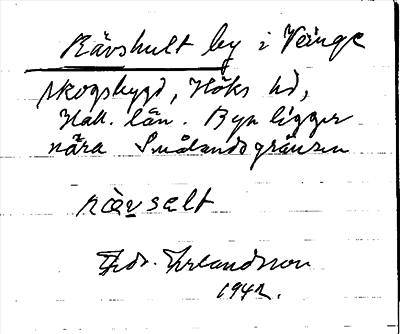 Rävshult by i Veinge
skogsbygd, Höks hd,
Hall. län. Byn ligger
nära Smålandsgränsen
rævsælt
Thdr. Erlandsson
1942.